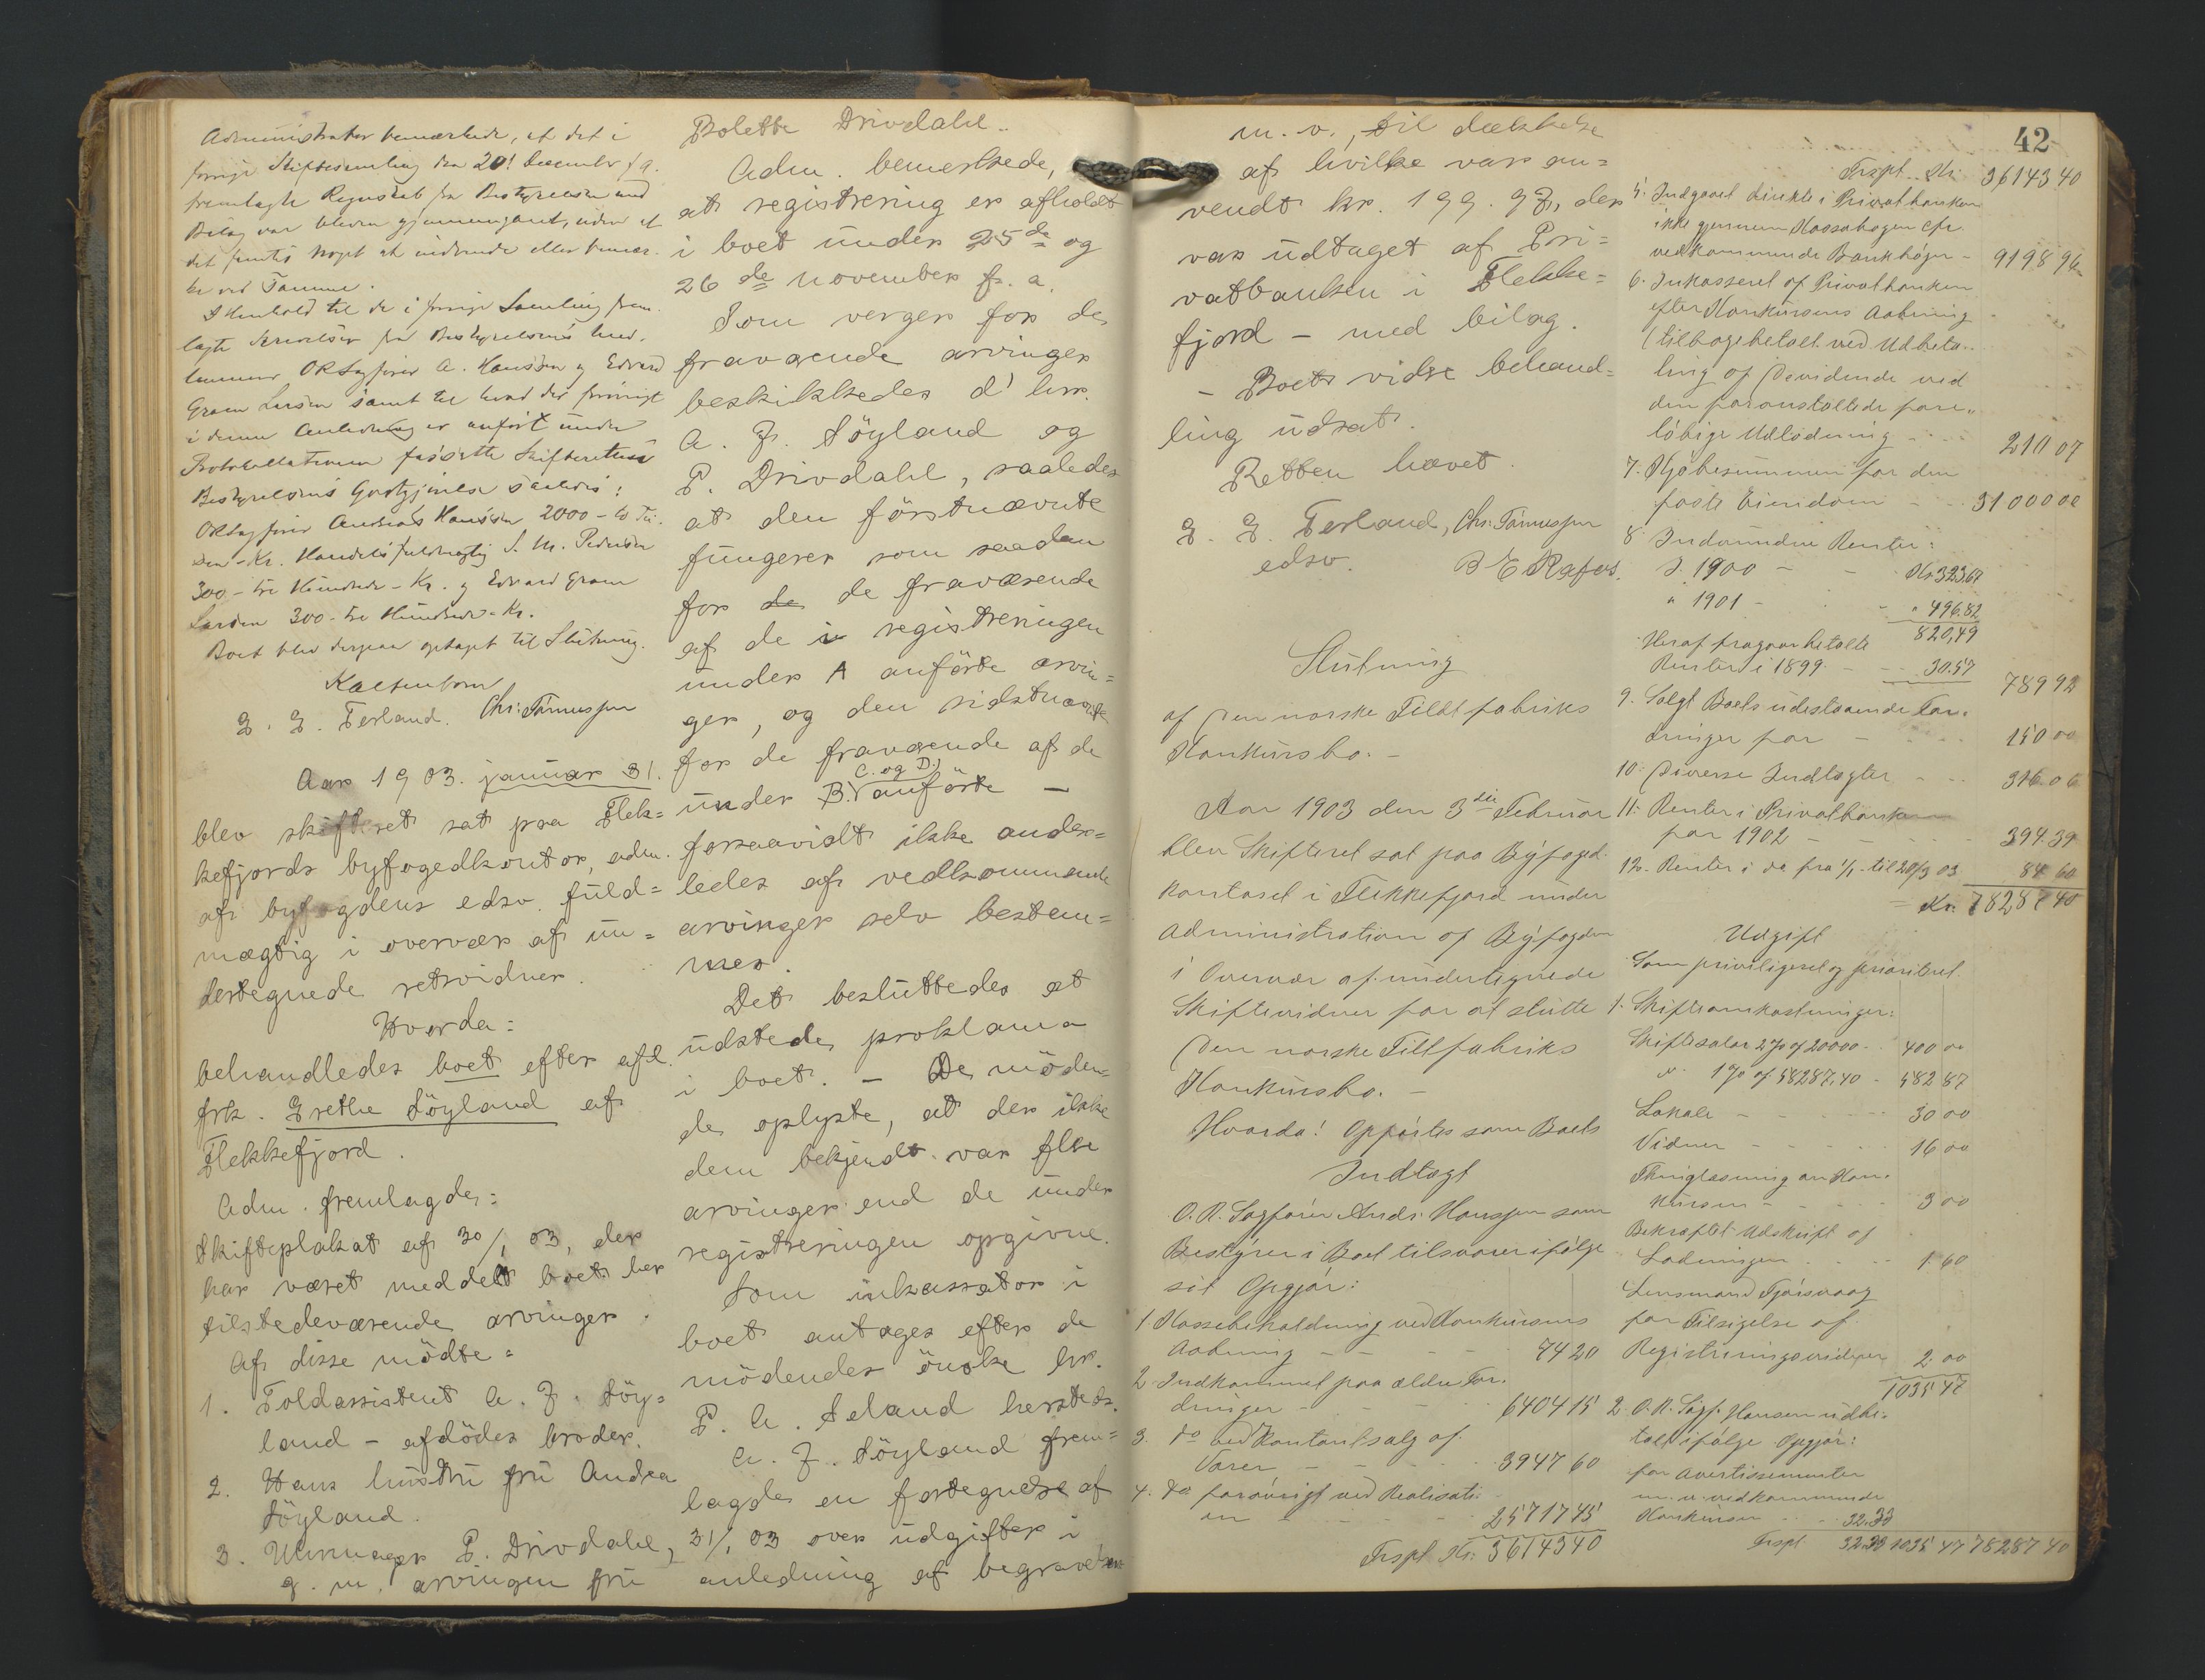 Administrator bemærkede, at det i
forrige Skiftesamling den 20! December f. a.
fremlagte Regnskab fra Bestyrelsen med
Bilag var bleven gjennemgaaet, uden at
det fandtes noget at indvende eller bemær-
ke ved Samme.
I Henhold til de i forrige Samling frem-
lagte Skrivelser fra Bestyrelsens med-
lemmer ORSagfører A. Hanssen og Edvard
Gram Larsen samt til hvad der forøvrigt
i denne Anledning er anført under
Protokollationen fastsatte Skifteretten
Bestyrelsens Godtgjørelse saaledes:
ORSagfører Andreas Hanssen 2000 - to Tu-
sen - Kr. Handelsfuldmægtig S. M. Pedersen
300 - tre Hundrede - Kr. og Edvard Gram
Larsen 300 - tre Hundrede - Kr.
Boet blev derpaa optaget til Slutning.
Kaltenborn
G. G. Ferland. Chr: Tønnessen
Aar 1903. januar 31.
blev skifteret sat paa Flek=
kefjords byfogedkontor, adm.
af byfogdens edsv. fuld=
mægtig i overvær af un=
dertegnede retsvidner.
Hvorda:
behandledes boet efter afd.
frk. Grethe Söyland af
Flekkefjord.
Adm. fremlagde:
Skifteplakat af 30/1 03, der
har været meddelt boets her
tilstedeværende arvinger.
Af disse mödte:
1. Toldassistent A. Z. Söy=
land - afdödes broder.
2. Hans hustru fru Andrea
Söyland.
3. Urmager P. Drivdahl,
g. m. arvingen fru
Bolette Drivdahl.
Adm. bemerkede,
at registrering er afholdt
i boet under 25de og
26de november f. a.
Som verger for de
fraværende arvinger
beskikkedes d'hrr.
A. Z. Söyland og
P. Drivdahl, saaledes
at den förstnævnte
fungerer som saadan
for de de fraværende
af de i registreringen
under A anförte arvin=
ger, og den sidstnævnte
for de fraværende af de
C. og D.)
under B. anförte -
forsaavidt ikke ander=
ledes af vedkommende
arvinger selv bestem=
mes.
Det besluttedes at
udstede proklama
i boet. - De möden=
de oplyste, at der ikke
dem bekjendt var flere
arvinger end de under
registreringen opgivne.
Som inkassator i
boet antages efter de
mödendes önske hr.
P. A. Seland hersteds.
A. Z. Söyland frem=
lagde en fortegnelse af
31/1 03 over udgifter i
anledning af begravelsen
m. v., til dækkelse
af hvilke var an=
vendt kr. 199.97, der
var udtaget af Pri=
vatbanken i Flekke=
fjord - med bilag.
- Boets vidre behand=
ling udsat.
Retten hævet.
G. G. Ferland, Chr: Tønnessen
edsv. B E Rafos.
Slutning
af Den norske Filtfabriks
Konkursbo. -
Aar 1903 den 3die Februar
blev Skifteret sat paa Byfoged-
kontoret i Flekkefjord under
Administration af Byfogden
i Overvær af undertegnede
Skiftevidner for at slutte
Den norske Filtfabriks
Konkursbo. -
Hvorda! Opførtes som Boets
Indtægt
O. R. Sagfører Andr. Hanssen som
Bestyrer i Boet tilsvarer ifølge
sit Opgjør:
1 Kassebeholdning ved Konkursens
Aabning - - - 74 20
2 Indkommet paa ældre For-
dringer - - 6404 15
3. do ved Kontantsalg af
Varer - - - 3947 60
4. do forøvrigt ved Realisati-
on - - - 25717 45
Trspt. Kr: 36143 40
42
Trspt. Kr. 36143 40
5. Indgaaet direkte i Privatbanken
ikke gjennem Kassabogen cfr.
vedkommende Bankbøger - 9198 96
6. Inkasseret af Privatbanken
efter Konkursens Aabning
(tilbagebetalt ved Udbeta-
ling af Dividende ved
den foranstaltede fore-
løbige Udlodning - - 210 07
7. Kjøbesummen for den
faste Eiendom - - 31000 00
8 Indvundne Renter:
I 1900 - - Kr 323.67
" 1901 - - " 496.82
820,49
Heraf fragaar betalte
Renter i 1899. - - 30.57
789 92
9. Solgt Boets udestaaende For-
dringer for - - 150 00
10. Diverse Indtægter - - 316.06
11. Renter i Privatbanken
for 1902 - - 394.39
12. Renter i do fra 1/1 - til 20/3 03 84 60
Kr. 78287 40
Udgift
Som priviligeret og prioriteret.
1. Skifteomkostninger:
Skiftesalær 2% af 20000 - 400 00
" 1% af 58287,40 - 582 87
Lokale - - - 30 00
Vidner - - - 16 00
Thinglæsning om Kon-
kursen - - - 3 00
Bekræftet Udskrift af
Ladningen - - 1. 60
Lensmand Fjørsvaag
for Tilsigelse af
Registreringsvidner 2. 00
1035 47
2. O. R. Sagf. Hansen udbe-
talt ifølge Opgjør:
for Avertissementer
m. v. vedkommende
Konkursen - - 32.33
Trspt. 32.33 1035 47 78287 40